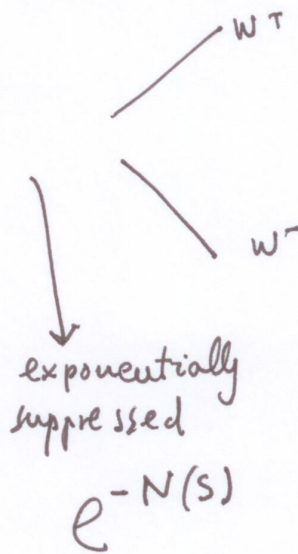 W+
W-
exponentially
suppressed
e^-N(s)